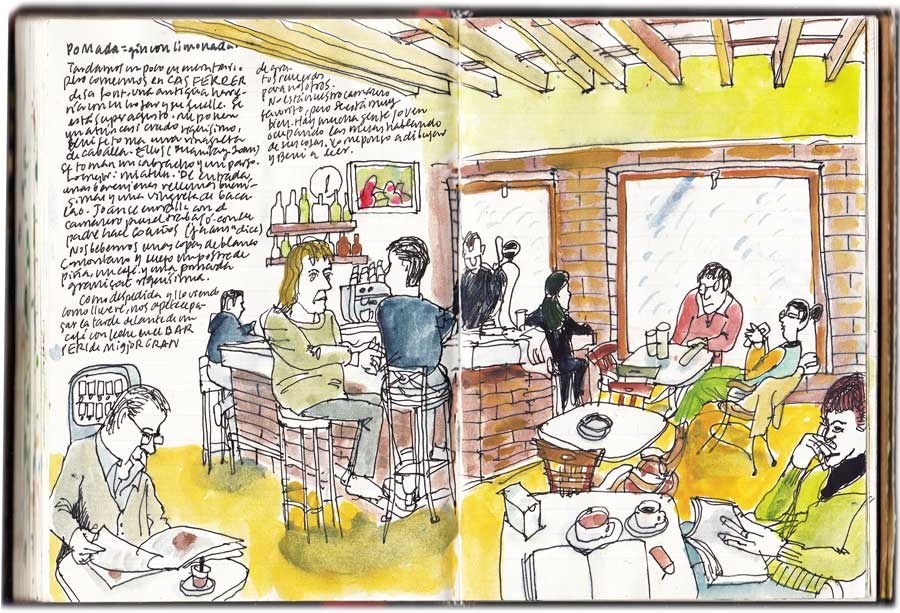 POMADA = gin con limonada.
Tardamos un poco en encontrarlo
pero comemos en CAS FERRER
de sa font. una antigua
con un hogar y que fuelle. Se
está super a gusto. Me ponen
un atún casi crudo riquísimo,
Beni se toma una vinagreta
de caballa. Ellos (Manita y Joan)
se toman un cabracho y un pargo.
Lo mejor: mi atún. De entrada,
unas berenjenas rellenas buení-
simas y una vinagreta de baca-
lao. Joan se enrolla con el
camarero pues él trabajó con su
padre hace 60 años (ja en sa dica)
Nos bebemos unas copas de blanco
y luego un postre de
piña, un café y una pomada
granizada riquísima.
Como despedida y lloviendo
como llueve, nos apetece pa-
sar la tarde delante de un
café con leche en el BAR
PERI de MIGJORGRAN
de gra-
tos
para nosotros.
No está nuestro camarero
favorito, pero se está muy
bien. Hay mucha gente joven
ocupando las mesas hablando
de sus cosas. Yo me pongo a dibujar
y Beni a leer.